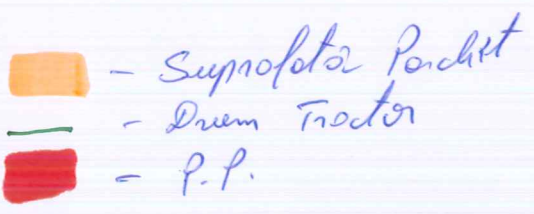 - Suprafata Parchet
- Drum Tractor
- P.P.